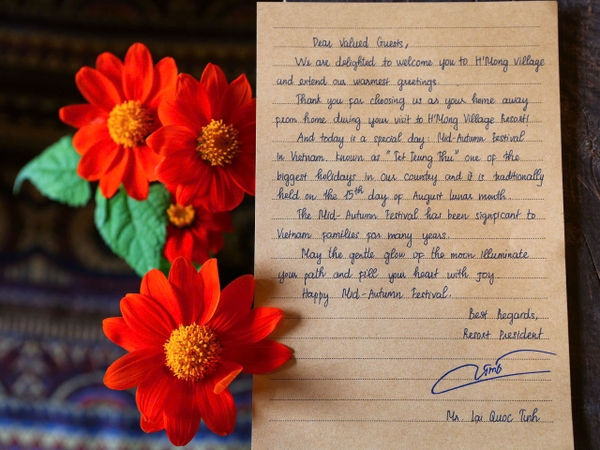 Dear Valued Guests,
We are delighted to welcome you to H'Mong Village
and extend our warmest greetings.
Thank you for choosing us as your home away
from home during your visit to H'Mong Village Resort!
And today is a special day: Mid-Autumn Festival
in Vietnam, known as "Tet Trung Thu" one of the
biggest holidays in our country and it is traditionally
held on the 15th day of August lunar month.
The Mid-Autumn Festival has been significant to
Vietnam families for many years.
May the gentle glow of the moon illuminate
your path and fill your heart with joy.
Happy Mid-Autumn Festival.
Best Regards,
Resort President
Mr. Lai Quoc Tinh